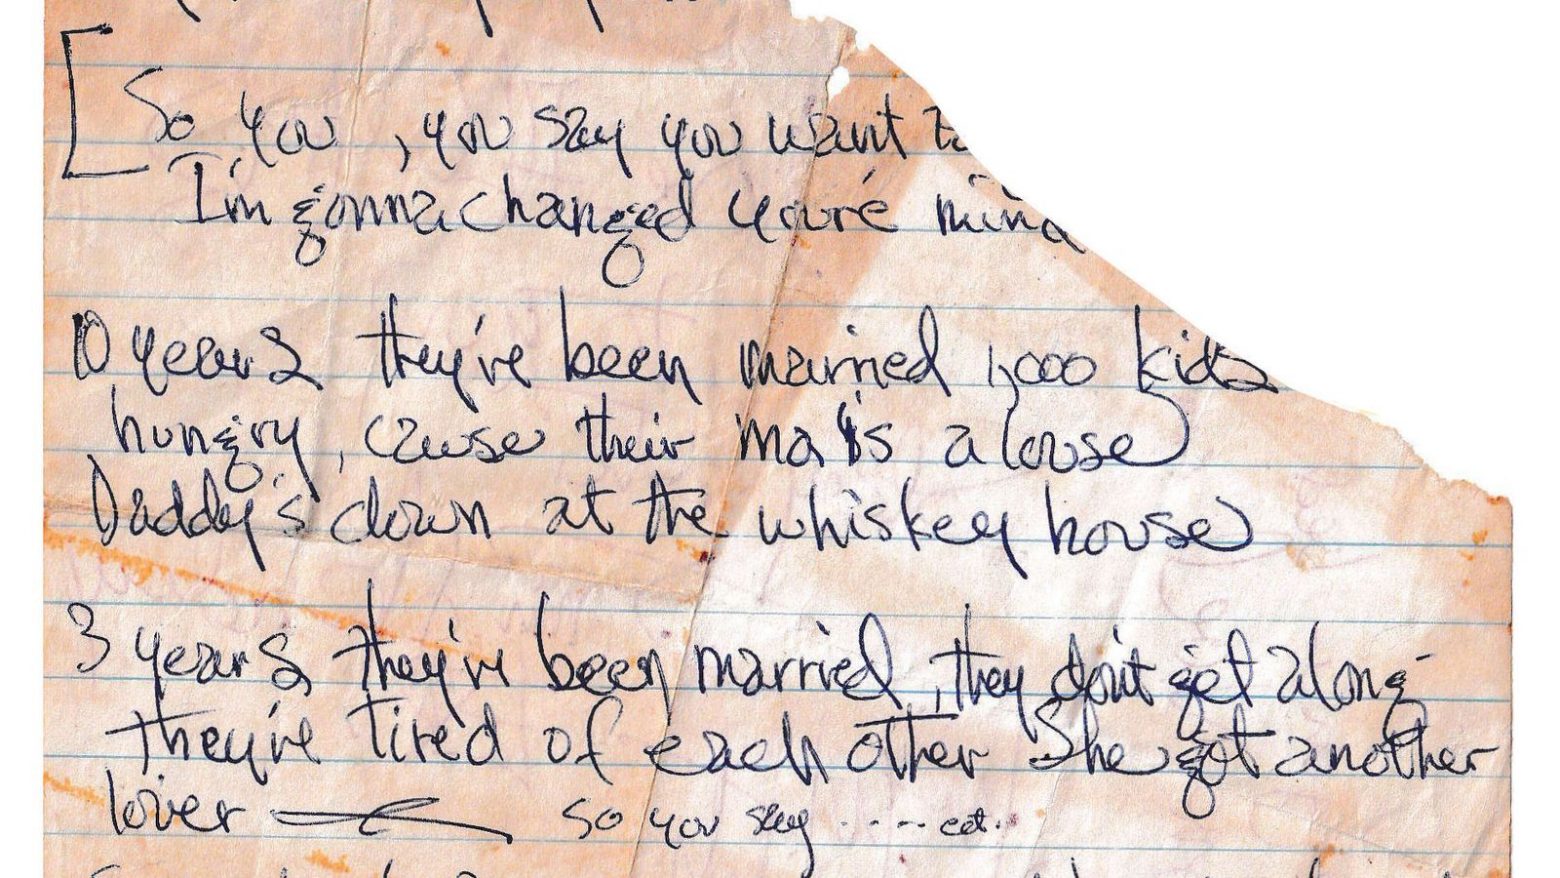 So you, you say you want to
I'm gonna changed youre mind
10 years they've been married 1,000 kids
hungry, cause their ma's a louse
Daddy's down at the whiskey house
3 years they've been married, they don't get along
they're tired of each other She got another
lover — so you say ---- ect.